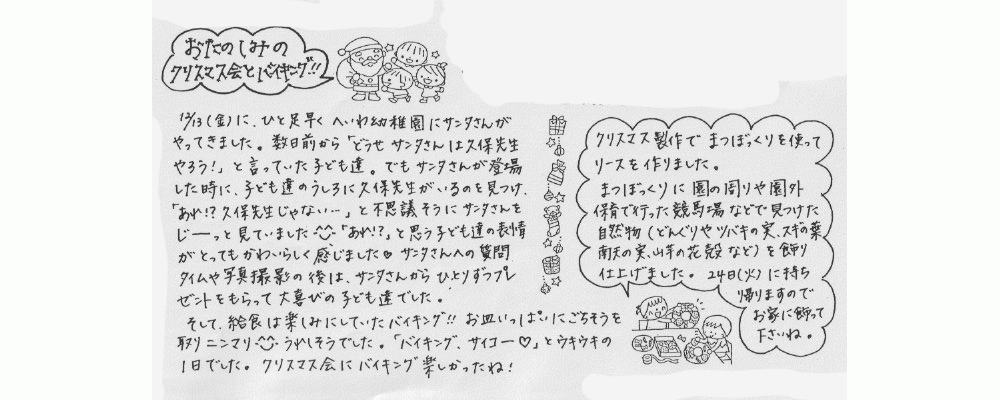 おたのしみの
クリスマス会とバイキング!!
12/13(金)に、ひと足早くへいわ幼稚園にサンタさんが
やってきました。数日前から「どうせサンタさんは久保先生
やろう!」と言っていた子ども達。でもサンタさんが登場
した時に、子ども達のうしろに久保先生がいるのを見つけ、
「あれ!?久保先生じゃない…」と不思議そうにサンタさんを
じーっと見ていました「あれ!?」と思う子ども達の表情
がとってもかわいらしく感じました♡サンタさんへの質問
タイムや写真撮影の後は、サンタさんからひとりずつプレ
ゼントをもらって大喜びの子ども達でした。
そして、給食は楽しみにしていたバイキング!!お皿いっぱいにごちそうを
取りニンマリうれしそうでした。「バイキング、サイコー♡」とウキウキの
1日でした。クリスマス会にバイキング楽しかったね!
クリスマス製作でまつぼっくりを使って
リースを作りました。
まつぼっくりに園の周りや園外
保育で行った競馬場などで見つけた
自然物(どんぐりやツバキの実、スギの葉
南天の実、山芋の花殻など)を飾り
仕上げました。24日(火)に持ち
帰りますので
お家に飾って
下さいね。